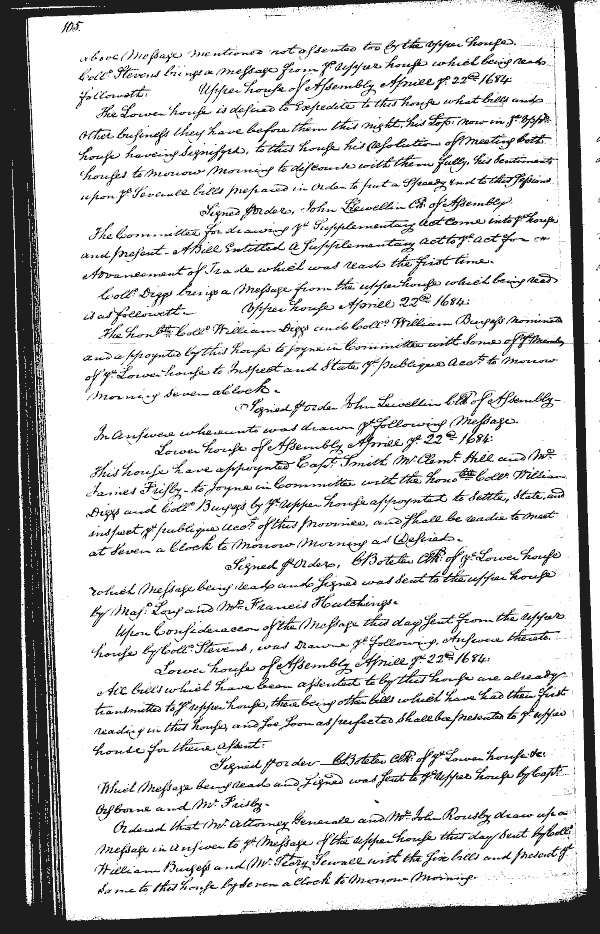 105.
above Message mentioned not assented too by the upper house.
Coll.o Stevens brings a Message from ye upper house which being read
followeth. Upper house of Assembly Aprill ye 22.th 1684
The Lower house is desired to Expedite to this house what bills and
other business they have before them this night, his Lo.sp now in ye upp.r
house haveing Signifyed, to this house his Resolution of meeting both
houses to Morrow Morning to discourse with them fully his Sentiments
upon ye Severall bills prepared in Order to put a Speedy end to this Sessions
Signed p order, John Llewellin Cl: of Assembly
The Committee for drawing ye Supplementary Act come into ye house
and present. A Bill Entitled A Supplementary Act to ye Act for
Advancement of Trade which was read the first time.
Coll.o Digg brings a Message from the upper house which being read
is as followeth. Upper house Aprill 22.th 1684.
The Hon.ble Coll.o William Digg and Coll.o William Burgess nominated
and appoynted by this house to joyne in Committee with Some of ye Members
of ye Lower house to Inspect and State ye publique Acc.ts to Morrow
Morning Seven a Clock.
Signed p order John Lewellin Clk. of Assembly.
In Answere whereunto was drawn ye following Message
Lower house of Assembly Aprill ye 22.th 1684:
This house have appoynted Cap.t Smith Mr. Clem.t Hill and Mr.
James Frisby to Joyne in Committee with the hono.ble Coll.o William
Diggs and Coll.o Burgess by ye upper house appoynted to Settle, State and
inspect ye publique Acc.ts of this Province, and shall be readie to meet
at Seven a Clock to Morrow Morning as desired.
Signed p Order, C Boteler Clk: of ye Lower house
which Message being read and Signed was Sent to the upper house
by Maj.r Long and Mr. Francis Hutchings.
Upon Consideracon of the Message this day Sent from the upper
house by Coll.o Stevens, was drawne ye following Answere thereto.
Lower house of Assembly Aprill ye 22.th 1684:
All bills which have been assented to by this house are already
transmitted to ye upper house, there being other bills which have had their first
reading in this house, and Soe Soon as perfected Shall bee presented to ye upper
house for their assent.
Signed p order C Boteler Clk: of ye Lower house &c
Which Message being read and Signed was Sent to ye upper house by Cap.t
Osborne and Mr. Frisby.
Ordered that Mr. Attorney Generale and Mr. John Rousby draw up a
Message in Answer to ye Message of the upper house this day Sent by Coll.o
William Burgess and Mr. Sewall with the five bills and present ye
Same to this house by Seven a Clock to Morrow Morning.